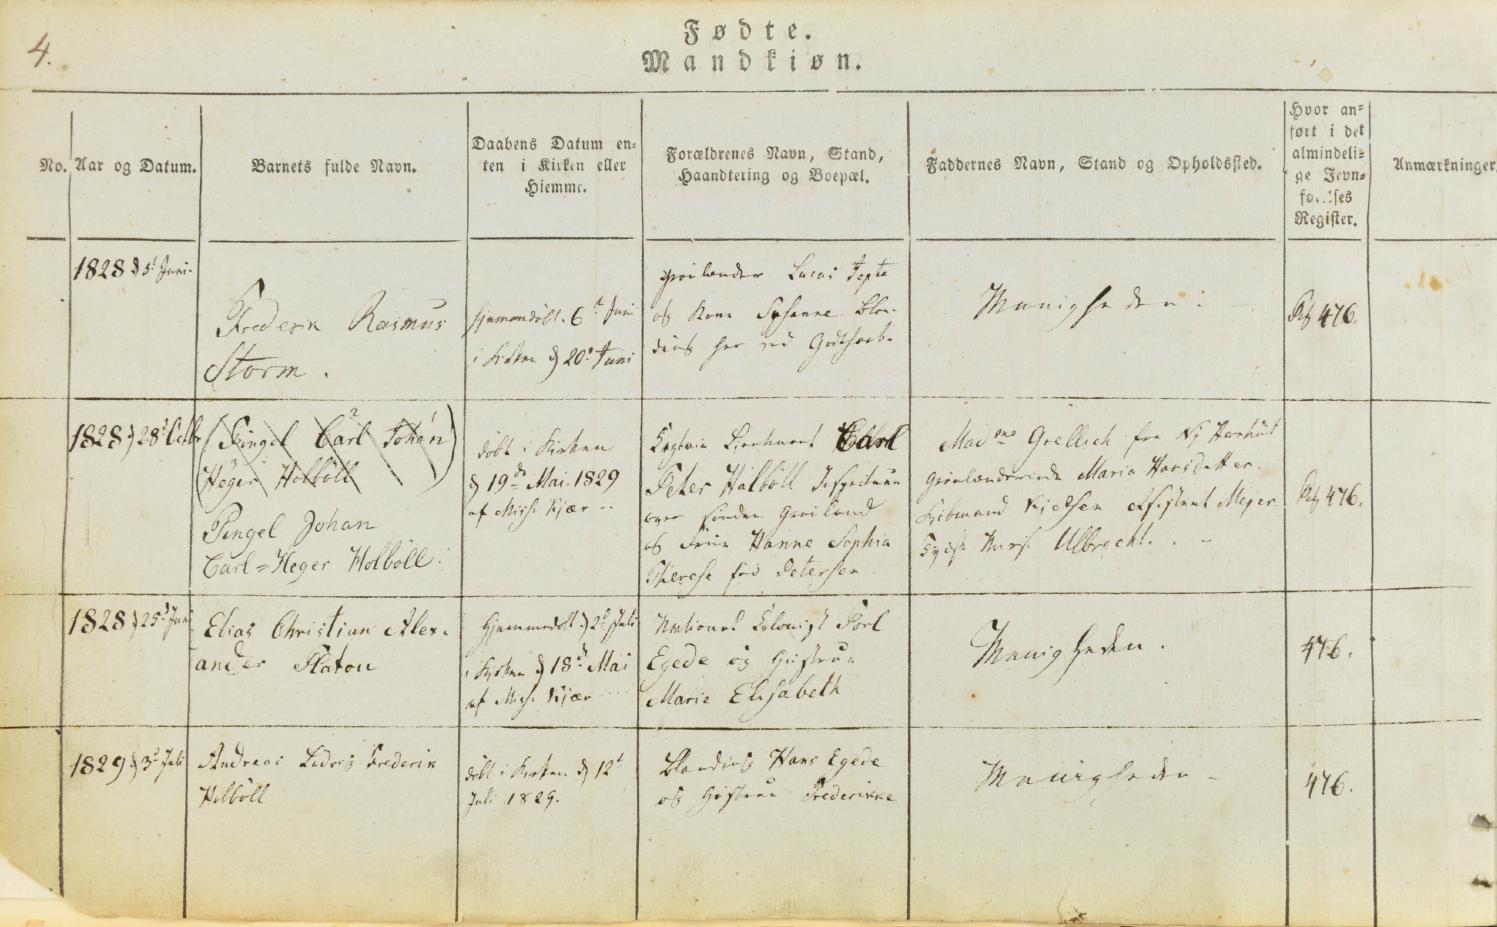 4.
Fødte.
Mandkiøn.
No.
Aar og Datum.
Barnets fulde Navn.
Daabens Datum en-
ten i Kirken eller
Hiemme.
Forældrenes Navn, Stand,
Haandtering og Boepæl.
Faddernes Navn, Stand og Opholdssted.
Hvor an-
ført i det
almindeli-
ge Jevn-
Register.
Anmærkninger
1828 d 5t Juni.
Frederik Rasmus
Storm.
Hjemmedöbt. 6t Juni
i Kirken d 20t Juni
Grönlænder Lucas Jepte
og Kone Susanne Blan-
dings her ved Godthaab.
Menigheden.
Pag 476.
1828 d 28t Octbr
(Pingel Carl Johan
Höger Holböll)
Pingel Johan
Carl=Heger Holböll.
döbt i Kirken
d 19de Mai 1829
af Miss. Kjær
Capitain Lieutenant Carl
Peter Holböll Inspecteur
over Sönder Grönland
og Frue Hanne Sophia
Therese föd Petersen.
Madme Grellich fra Ny Herhut
Grönlænderinde Maria Hansdatter.
Kjöbmand Assistent Meyer
Miss. Ulbrecht.
Pag 476.
1828 d 25t Juni
Elias Christian Alex-
ander Platou
Hjemmedöbt d 2t Juli
i Kirken d 18de Mai
af Miss. Kjær
National Colonist Pörl
Egede og Hustrue
Marie Elisabeth
Menigheden.
476.
1829 d 3t Juli
Andreas Ludvig Frederik
Holböll
döbt i Kirken d 12t
Juli 1829.
Blanding Hans Egede
og Hustrue Frederikke
Menigheden
476.